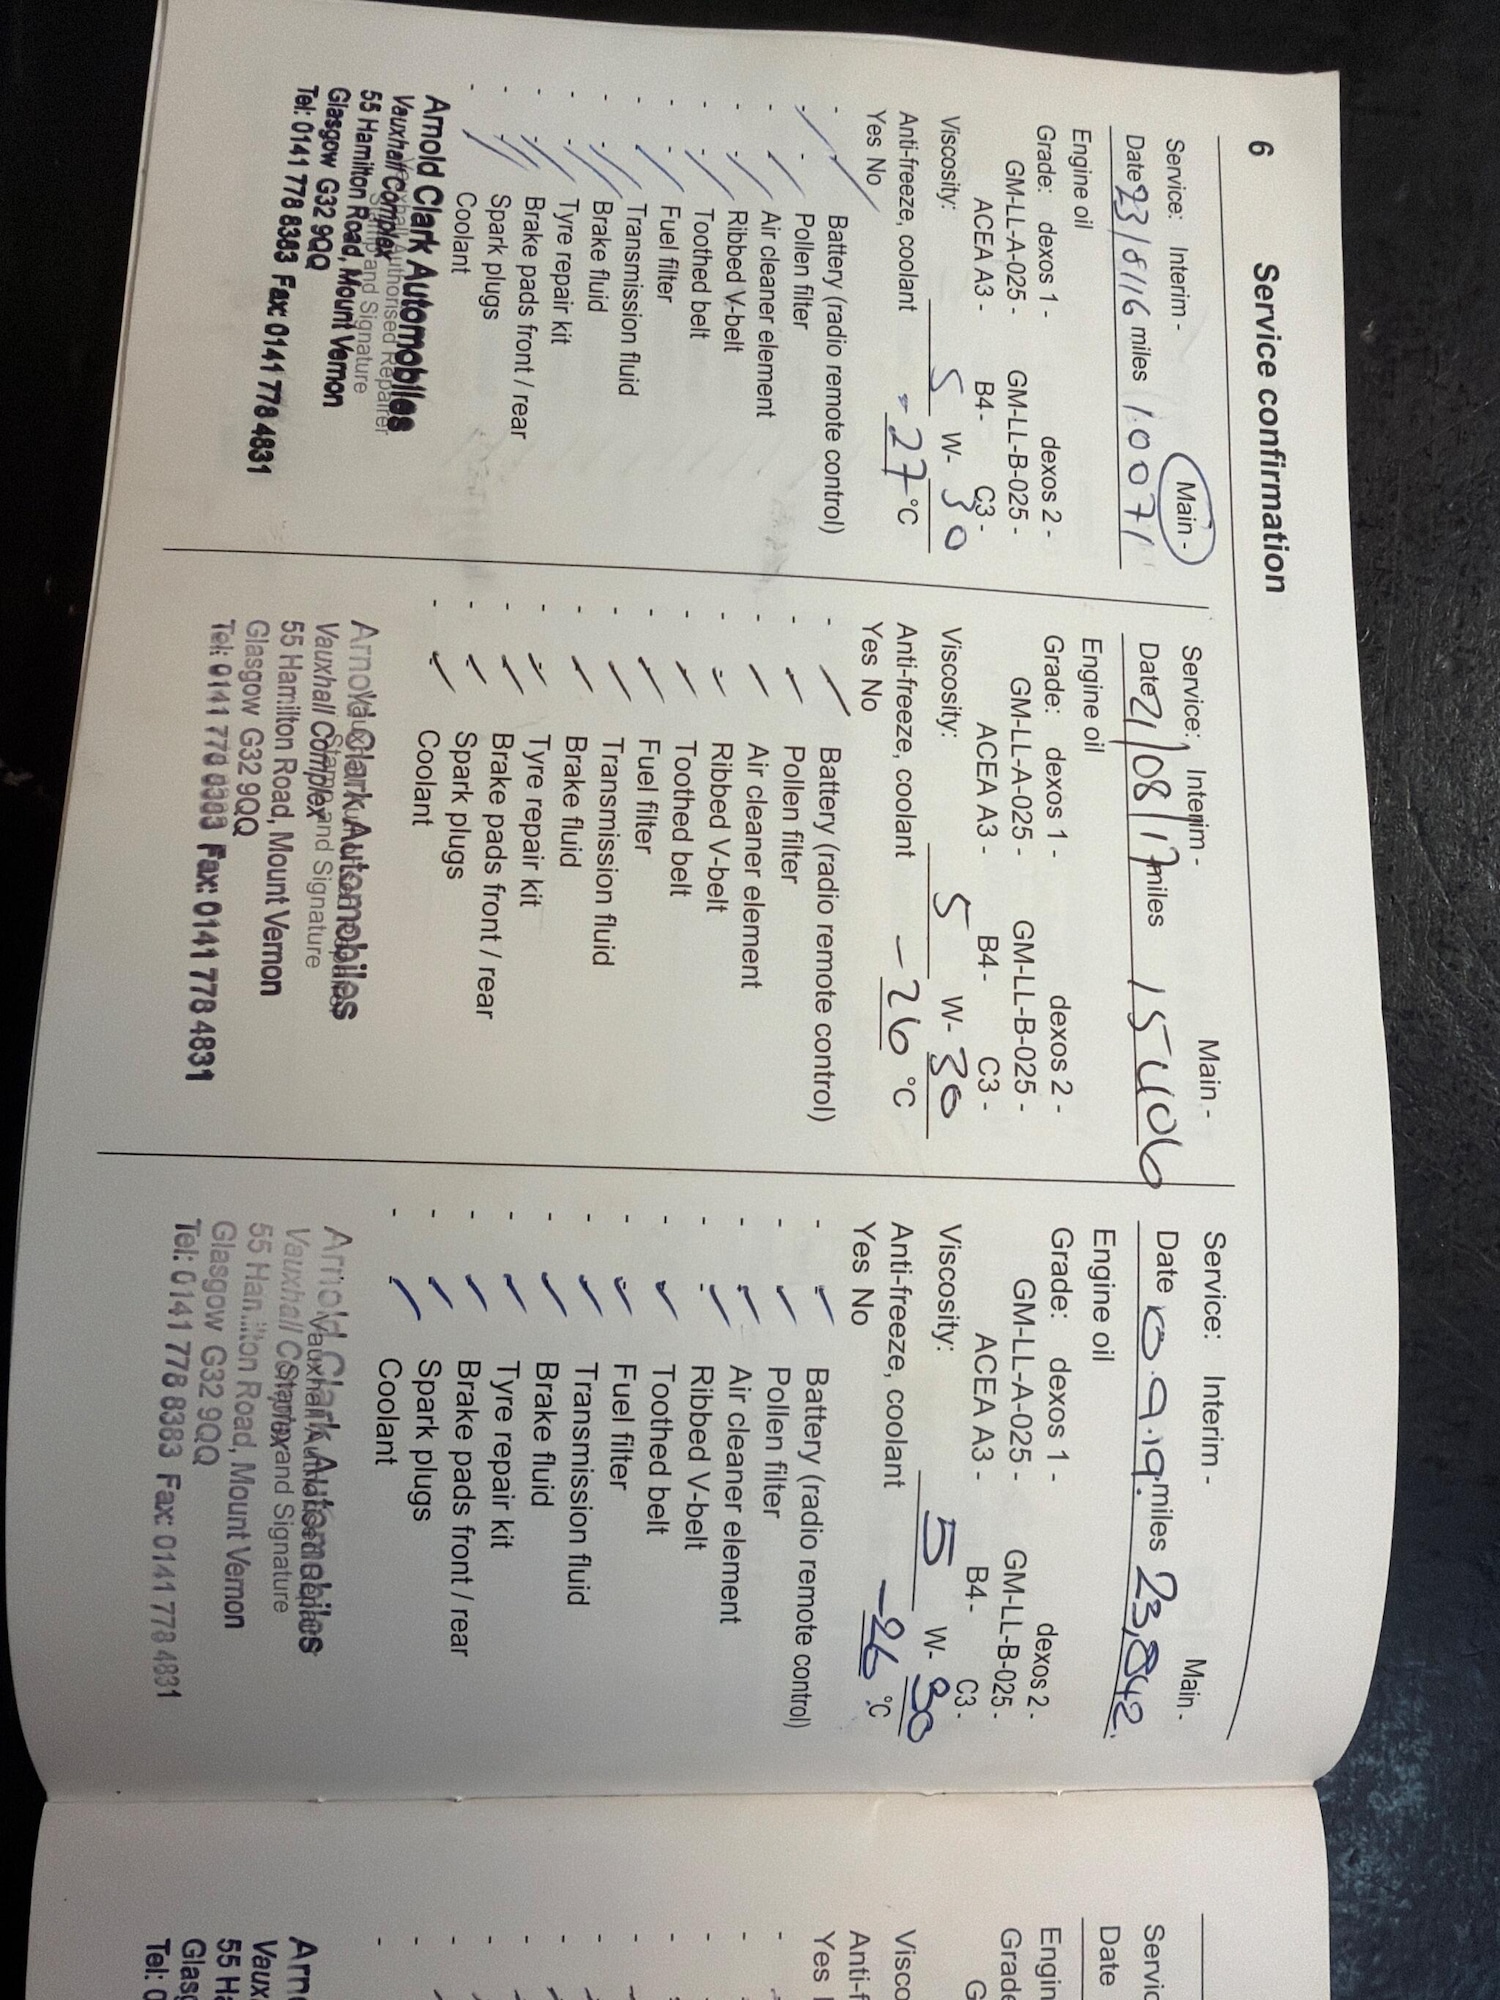 6 Service confirmation
Service: Interim - Main -
Date 23/8/16 miles 10071
Engine oil
Grade: dexos 1 - dexos 2 -
GM-LL-A-025 - GM-LL-B-025 -
ACEA A3 - B4 - C3 -
Viscosity: 5 W- 30
Anti-freeze, coolant -27 °C
Yes No
- Battery (radio remote control)
- Pollen filter
- Air cleaner element
- Ribbed V-belt
- Toothed belt
- Fuel filter
- Transmission fluid
- Brake fluid
- Tyre repair kit
- Brake pads front / rear
- Spark plugs
- Coolant
Vauxhall Authorised Repairer
Stamp and Signature
Arnold Clark Automobiles
Vauxhall Complex
55 Hamilton Road, Mount Vernon
Glasgow G32 9QQ
Tel: 0141 778 8383 Fax: 0141 778 4831
Service: Interim - Main -
Date 21/08/17 miles 15406
Engine oil
Grade: dexos 1 - dexos 2 -
GM-LL-A-025 - GM-LL-B-025 -
ACEA A3 - B4 - C3 -
Viscosity: 5 W- 30
Anti-freeze, coolant -26 °C
Yes No
- Battery (radio remote control)
- Pollen filter
- Air cleaner element
- Ribbed V-belt
- Toothed belt
- Fuel filter
- Transmission fluid
- Brake fluid
- Tyre repair kit
- Brake pads front / rear
- Spark plugs
- Coolant
Stamp and Signature
Arnold Clark Automobiles
Vauxhall Complex
55 Hamilton Road, Mount Vernon
Glasgow G32 9QQ
Tel: 0141 778 8383 Fax: 0141 778 4831
Service: Interim - Main -
Date 10.9.19. miles 23,842.
Engine oil
Grade: dexos 1 - dexos 2 -
GM-LL-A-025 - GM-LL-B-025 -
ACEA A3 - B4 - C3 -
Viscosity: 5 W- 30
Anti-freeze, coolant -26 °C
Yes No
- Battery (radio remote control)
- Pollen filter
- Air cleaner element
- Ribbed V-belt
- Toothed belt
- Fuel filter
- Transmission fluid
- Brake fluid
- Tyre repair kit
- Brake pads front / rear
- Spark plugs
- Coolant
Stamp and Signature
Arnold Clark Automobiles
Vauxhall Complex
55 Hamilton Road, Mount Vernon
Glasgow G32 9QQ
Tel: 0141 778 8383 Fax: 0141 778 4831
Date
Yes
55
Tel: 0